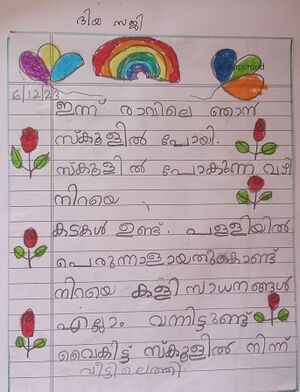 ദിയ സജി
6/12/23
ഇന്ന് രാവിലെ ഞാൻ
സ്കൂളിൽ പോയി.
സ്കൂളിൽ പോകുന്ന വഴി
നിറയെ
കടകൾ ഉണ്ട്. പള്ളിയിൽ
പെരുന്നാളായതുകൊണ്ട്
നിറയെ കളി സാധനങ്ങൾ
എല്ലാം വന്നിട്ടുണ്ട്
വൈകിട്ട് സ്കൂളിൽ നിന്ന്
വീട്ടിലെത്തി.